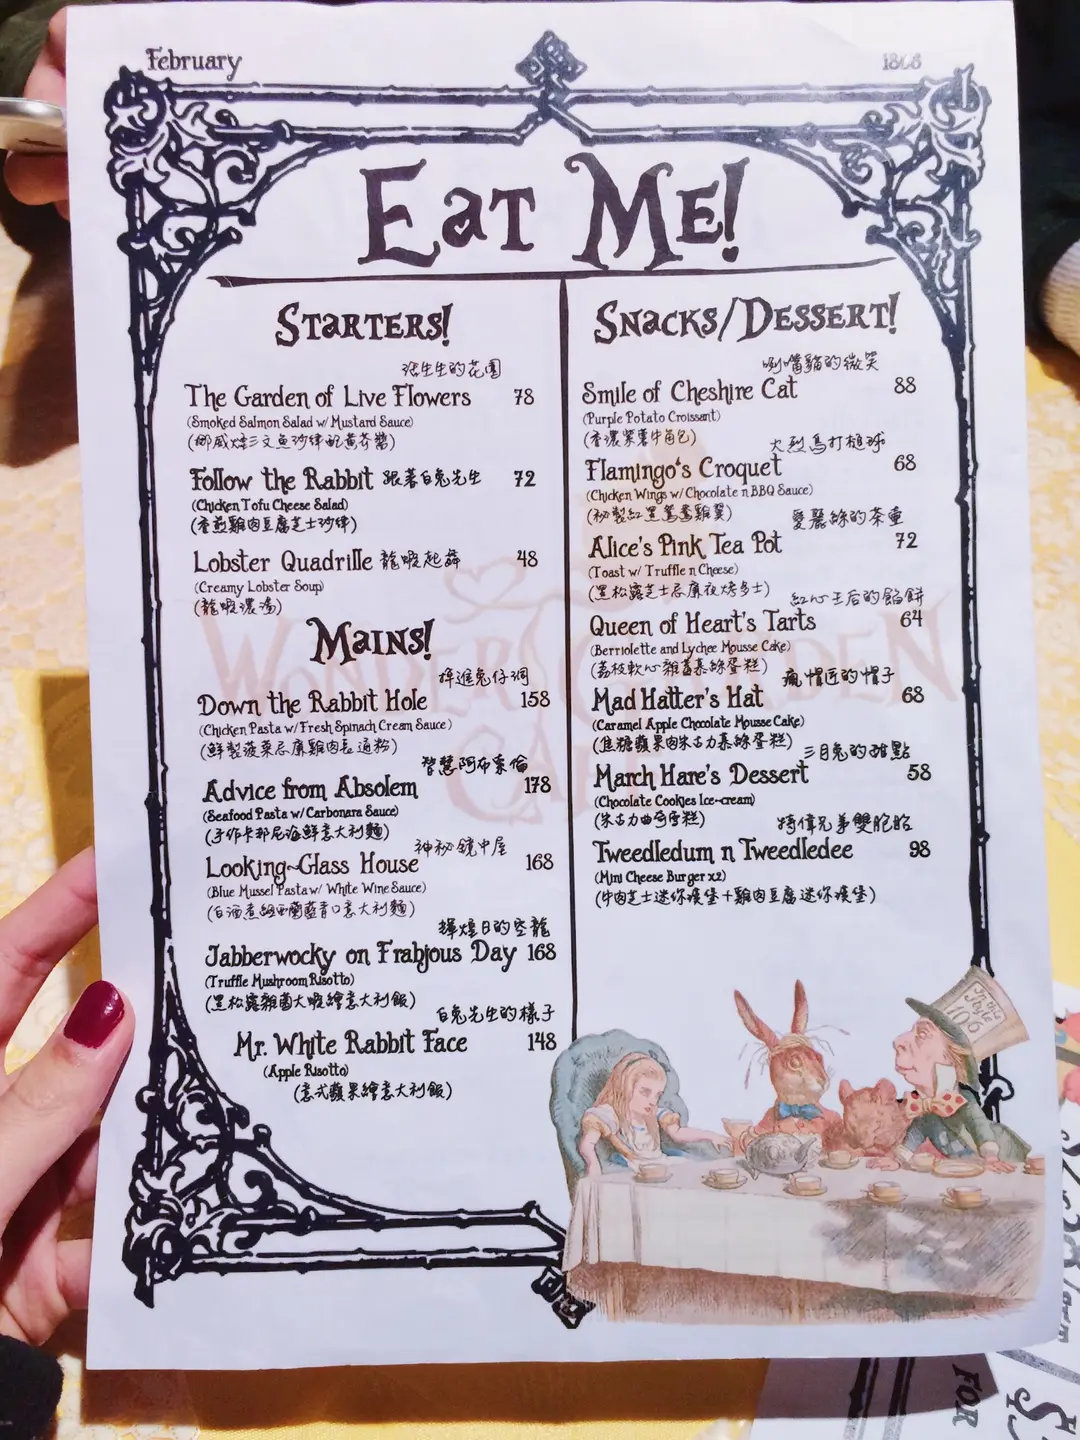 February
186
Eat Me!
Starters!
活生生的花園
The Garden of Live Flowers 78
(Smoked Salmon Salad w/ Mustard Sauce)
(挪威煙三文魚沙律配黃芥醬)
Follow the Rabbit 跟著白兔先生 72
(Chicken Tofu Cheese Salad)
(香煎雞肉豆腐芝士沙律)
Lobster Quadrille 龍蝦起舞 48
(Creamy Lobster Soup)
(龍蝦濃湯)
Mains!
掉進兔仔洞
Down the Rabbit Hole 158
(Chicken Pasta w/Fresh Spinach Cream Sauce)
(鮮製菠菜忌廉雞肉長通粉)
智慧阿布索倫
Advice from Absolem 178
(Seafood Pasta w/Carbonara Sauce)
(手作卡邦尼海鮮意大利麵)
神秘鏡中屋
Looking~Glass House 168
(Blue Mussel Pasta w/ White Wine Sauce)
(白酒煮紐西蘭藍青口意大利麵)
輝煌日的空龍
Jabberwocky on Frabjous Day 168
(Truffle Mushroom Risotto)
(黑松露雜菌大蝦燴意大利飯)
白兔先生的樣子
Mr. White Rabbit Face 148
(Apple Risotto)
(意式蘋果燴意大利飯)
Snacks/Dessert!
咧嘴貓的微笑
Smile of Cheshire Cat 88
(Purple Potato Croissant)
(香濃紫薯牛角包)
火烈鳥打槌球
Flamingo's Croquet 68
(Chicken Wings w/ Chocolate n BBQ Sauce)
(秘製紅黑鴛鴦雞翼)
愛麗絲的茶壺
Alice's Pink Tea Pot 72
(Toast w/ Truffle n Cheese)
(黑松露芝士忌廉夜烤多士)
紅心王后的餡餅
Queen of Heart's Tarts 64
(Berriolette and Lychee Mousse Cake)
(荔枝軟心雜莓慕絲蛋糕)
瘋帽匠的帽子
Mad Hatter's Hat 68
(Caramel Apple Chocolate Mousse Cake)
(焦糖蘋果肉朱古力慕絲蛋糕)
三月兔的甜點
March Hare's Dessert 58
(Chocolate Cookies Ice-cream)
(朱古力曲奇雪糕)
特偉兄弟雙胞胎
Tweedledum n Tweedledee 98
(Mini Cheese Burger x2)
(牛肉芝士迷你漢堡+雞肉豆腐迷你漢堡)
Wonder Garden
Cafe
In this
Style
10/6
FOR